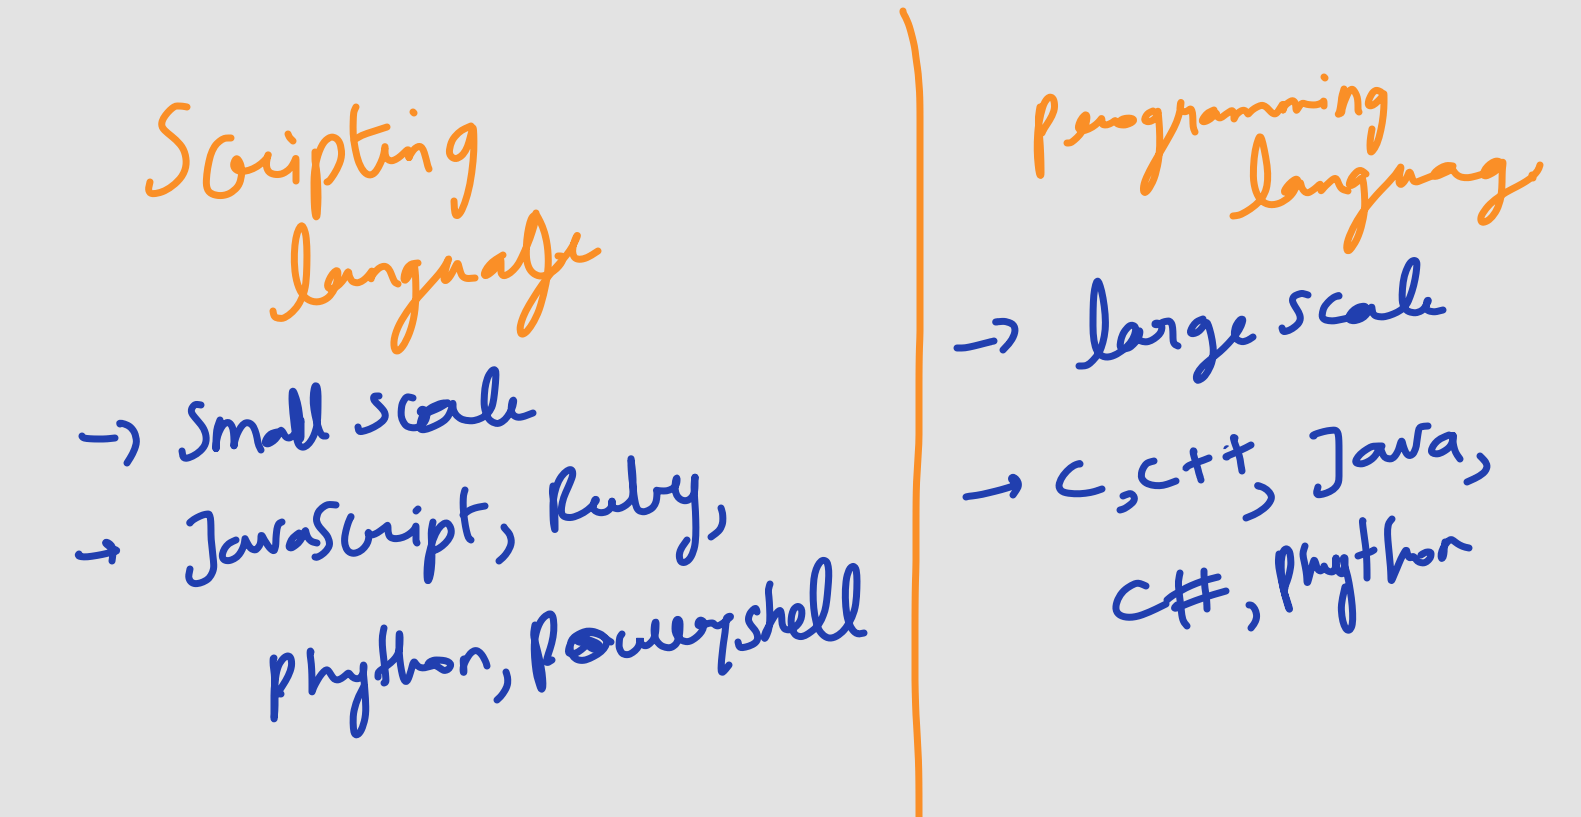 Scripting
language
→ Small scale
→ JavaScript, Ruby,
Phython, Powershell
Programming
languag
→ large scale
→ C, C++, Java,
C#, Phython